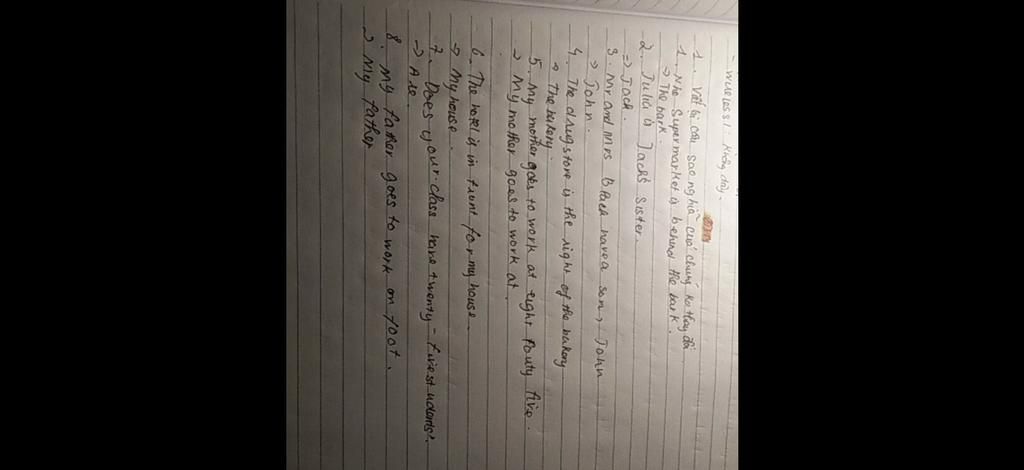 - Wireless: không dây.
1. Viết lại câu sao nghĩa của chúng ko thay đổi
1. The Supermarket is behind the bark.
→ The bark.
2. Julia is Jack's Sister.
⇒ Jack.
3. Mr and Mrs Black have a son, John
→ John.
4. The drugstore is the right of the bakery
→ The bakery.
5. My mother goes to work at eight fouty five.
→ My mother goes to work at.
6. The hotel is in front for my house.
→ My house.
7. Does your class have twenty-five students?
→ Are.
8. My father goes to work on foot.
→ My father